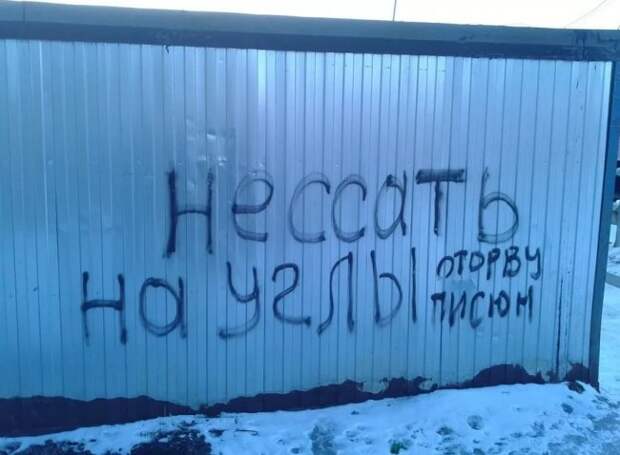 нессать
на углы
оторву
писюн